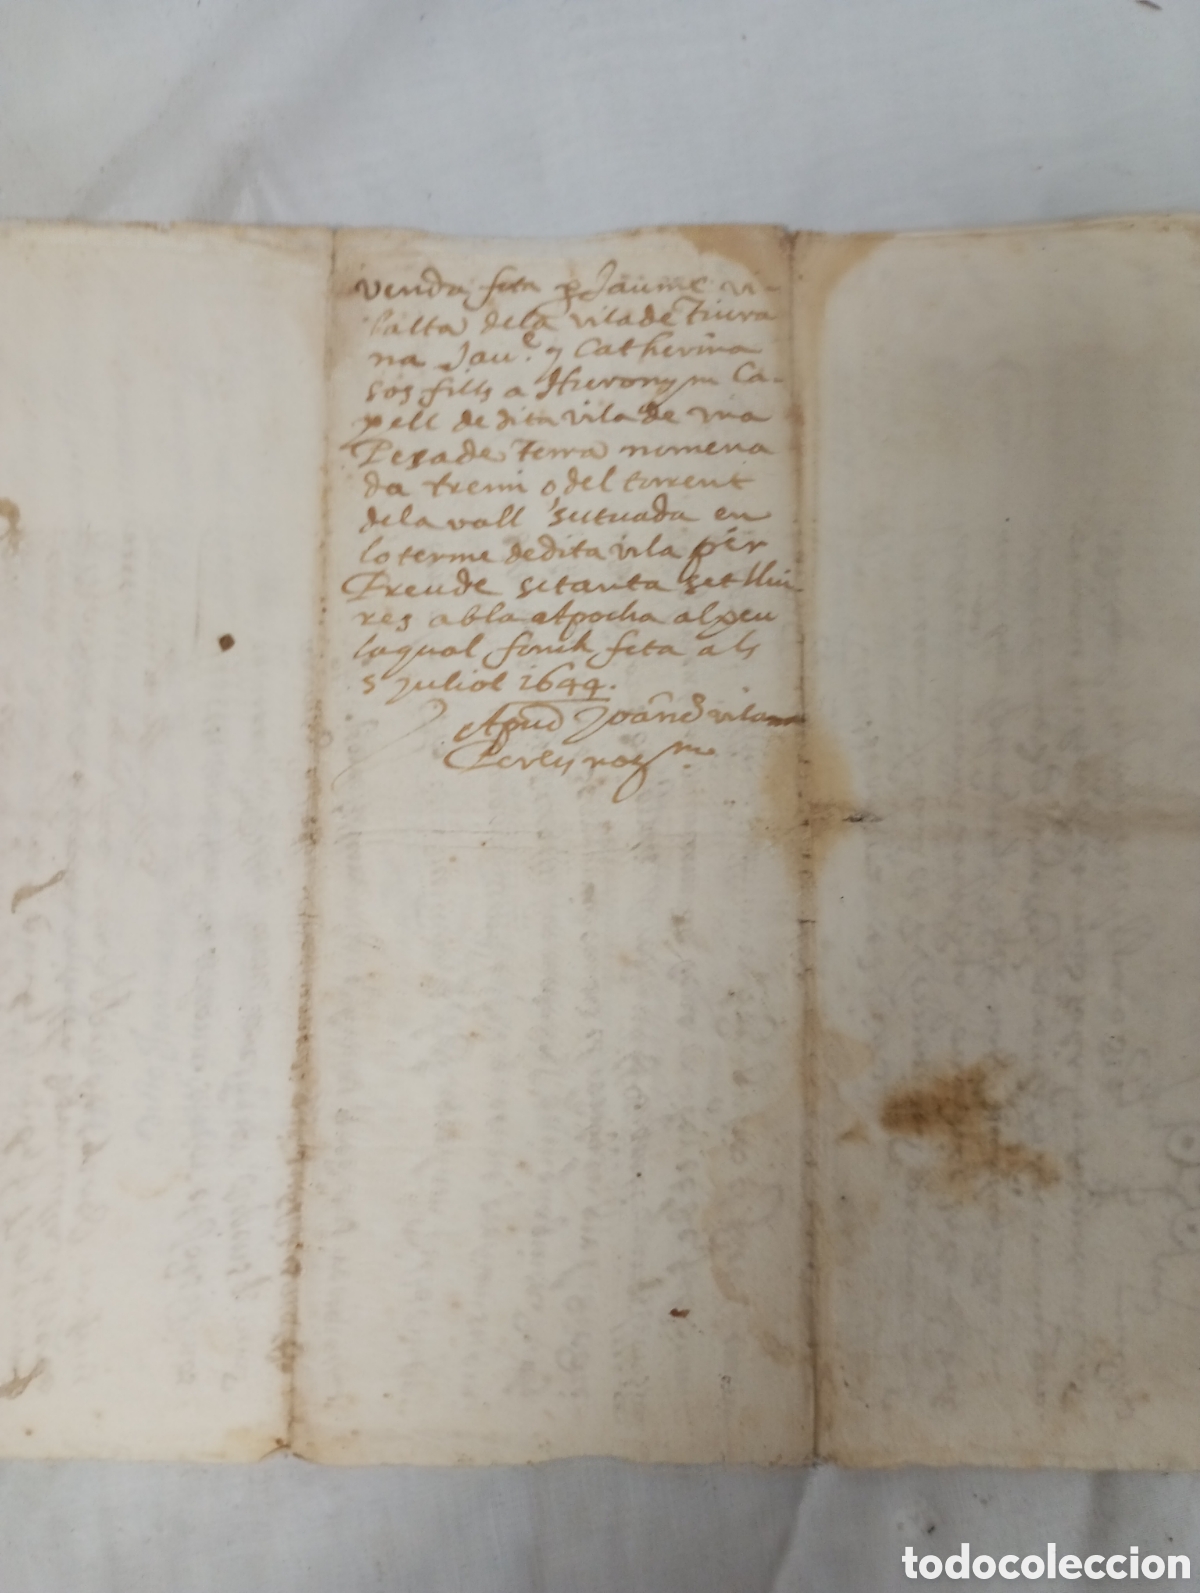 venda feta p Jaume vi-
lalta dela vila de Tiura
na Jau.e y Catherina
sos fills a Hieronym Ca-
pell de dita vila de una
Pesa de terra nomena
da tremi o del torrent
dela vall situada en
lo terme de dita vila per
Preu de setanta set lliu
res abla apocha al peu
laqual fonch feta als
5 juliol 1644.
Apud Joane vila
todocoleccion